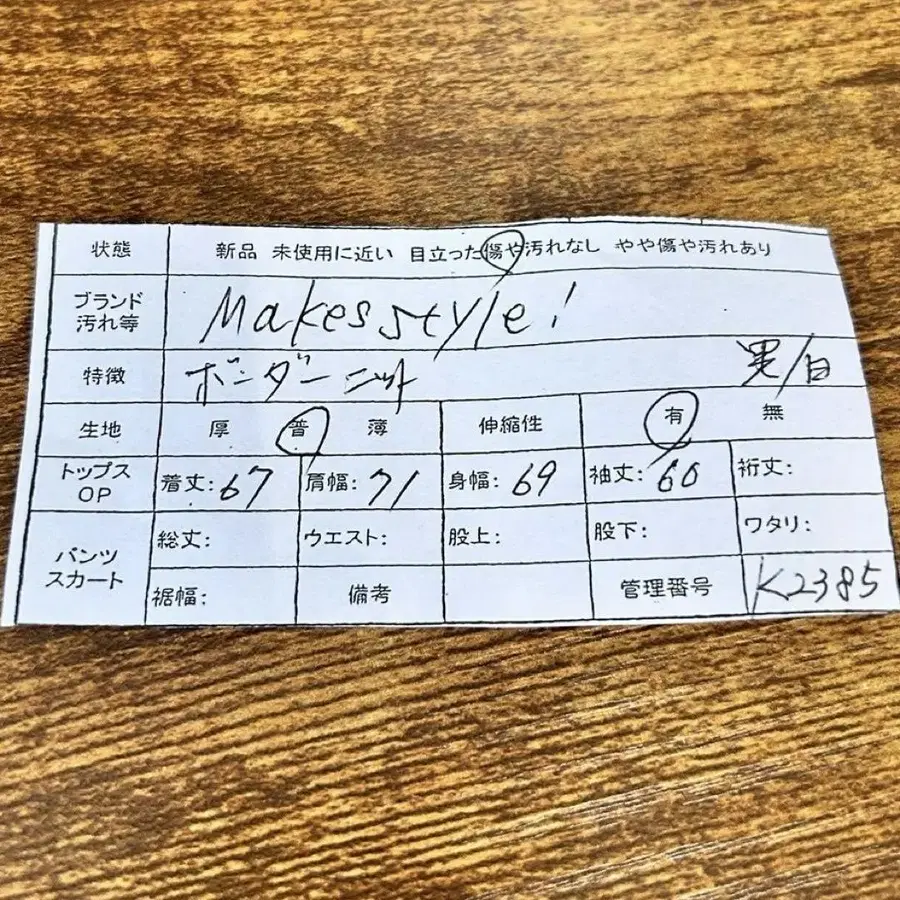 状態 新品 未使用に近い 目立った傷や汚れなし やや傷や汚れあり
ブランド
汚れ等 Makes style!
特徴 ボーダーニット 黒/白
生地 厚 普 薄 伸縮性 有 無
トップス
OP 着丈:67 肩幅:71 身幅:69 袖丈:60 裄丈:
パンツ
スカート 総丈: ウエスト: 股上: 股下: ワタリ:
裾幅: 備考 管理番号 K2385